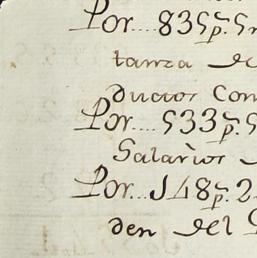 Por....835p. 5
tanza de
ductos Con
Por....533p. 5
Salarios
Por...148p. 2
den del